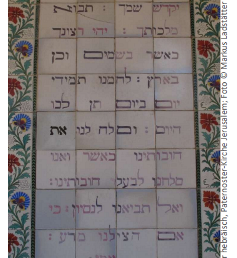 יקדש שמך : תבוא
מלכותך : יהי רצונך
כאשר בשמים וכן
בארץ : לחמנו תמידי
יום ביום תן לנו
היום : וסלח לנו את
חובותינו כאשר ואנו
סלחנו לבעלי חובותינו :
ואל תביאנו לנסיון : כי
אם הצילנו מרע :
r hebräisch, Paternosterkirche Jerusalem; Foto © Markus Lagstätter